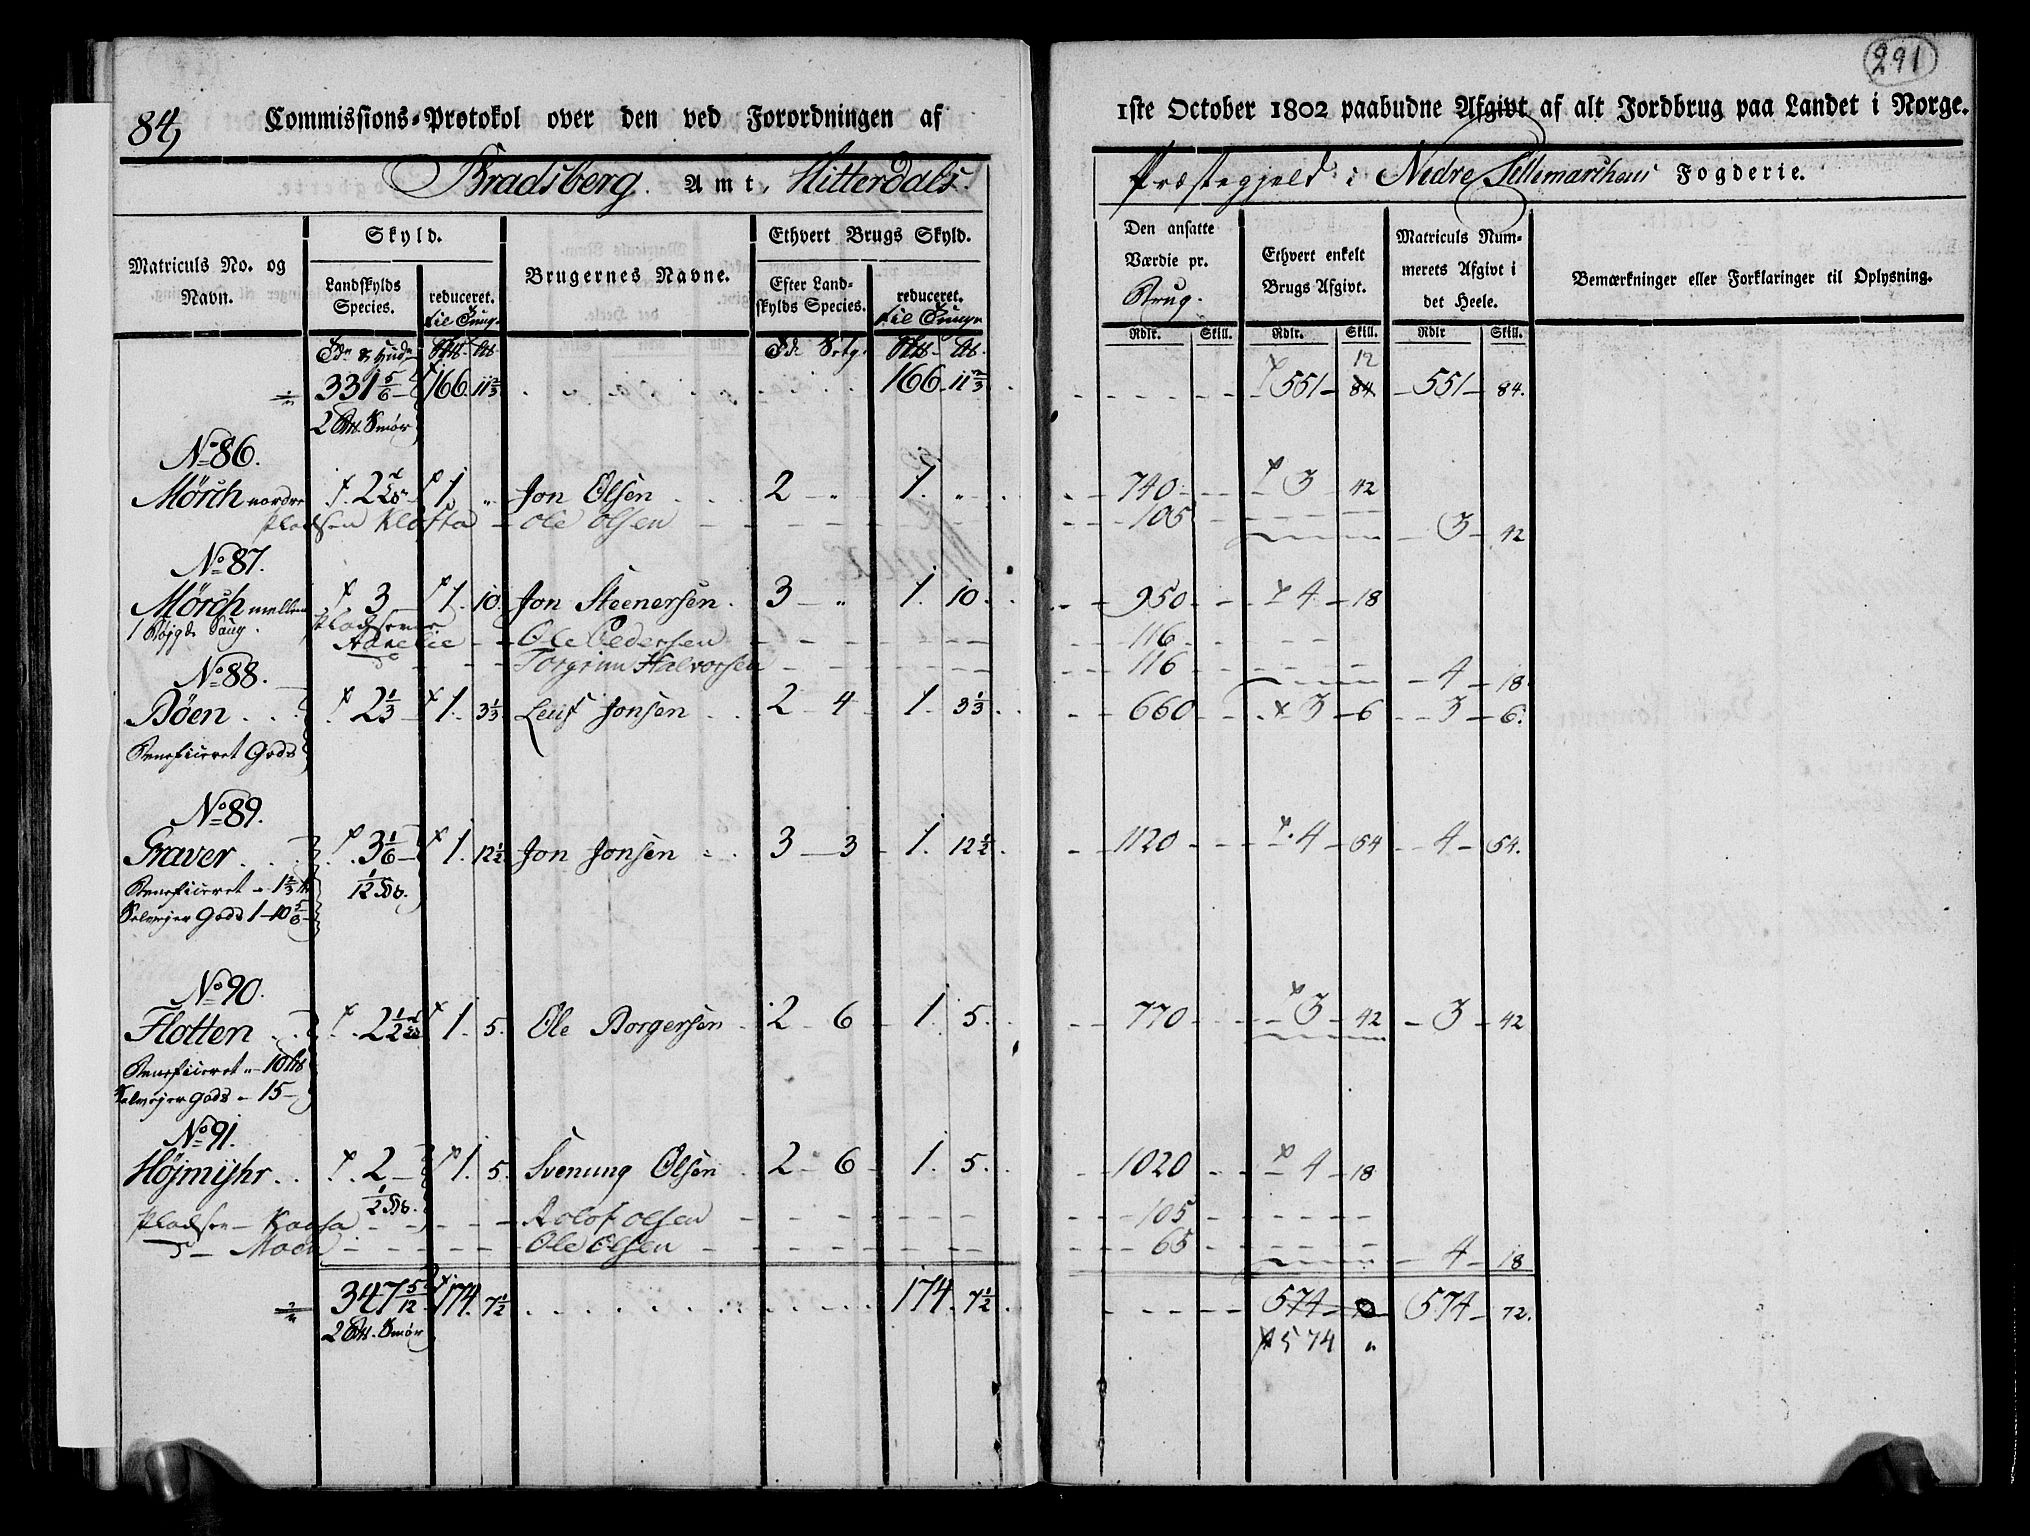 84,
Commissions-Protokol over den ved Forordningen af
1ste October 1802 paabudne Afgivt af alt Jordbrug paa Landet i Norge.
291
Bradsberg Amt, Hitterdals
Præstegjeld i Nedre Tellemarchens Fogderie.
Matriculs No. og Navn.
Skyld.
Landskylds Species.
reduceret. til Tunge
Brugernes Navne.
Ethvert Brugs Skyld.
Efter Landskylds Species.
reduceret. til Tunge
Den ansatte Værdie pr. Brug.
Ethvert enkelt Brugs Afgivt.
Matriculs Nummerets Afgivt i det Heele.
Bemærkninger eller Forklaringer til Oplysning.
Rdlr. Skill. Rdlr. Skill. Rdlr Skill.
331 5/6 166. 11 2/3 166 11 2/3 551 84 12 551 84.
2 Smør
No 86.
Mörch nordre 2 1 " Jon Olsen 2 " 1. " 740 3 42
Pladsen Klotta Ole Olsen 105 3 42
No 87.
Mörch mellem 3 1. 10. Jon Steenersen 3 " 1. 10 950 4 18
1 Bøjgde Saug. Pladserne
Aanelie Ole Pedersen 116
Torgrim Halvorsen 116 4 18
No 88.
Böen 2 1/3 1. 3 1/3 Leif Jonsen 2 4 1. 3 1/3 660 3 6 3 6.
Beneficeret Gods
No 89.
Graver 3 1/6 1. 12 1/2 Jon Jonsen 3 3 1. 12 1/2 1120 4 54 4 54.
Beneficeret 1 2/3 1/12
Selvejer Gods 1 10 5/6
No 90.
Flatten 2 1/2 1. 5. Ole Borgersen 2 6 1. 5. 770 3 42 3 42
Beneficeret " 10
Selvejer Gods 15
No 91.
Höjmyhr 2 1. 5. Svenung Olsen 2 6 1. 5. 1020 4 18
1/2
Pladsen Kaasa Aolof Olsen 105
Moen Ole Olsen 65 4 18
347 5/12 174. 7 1/2 174. 7 1/2 574 574 72.
2 Smør 574 "